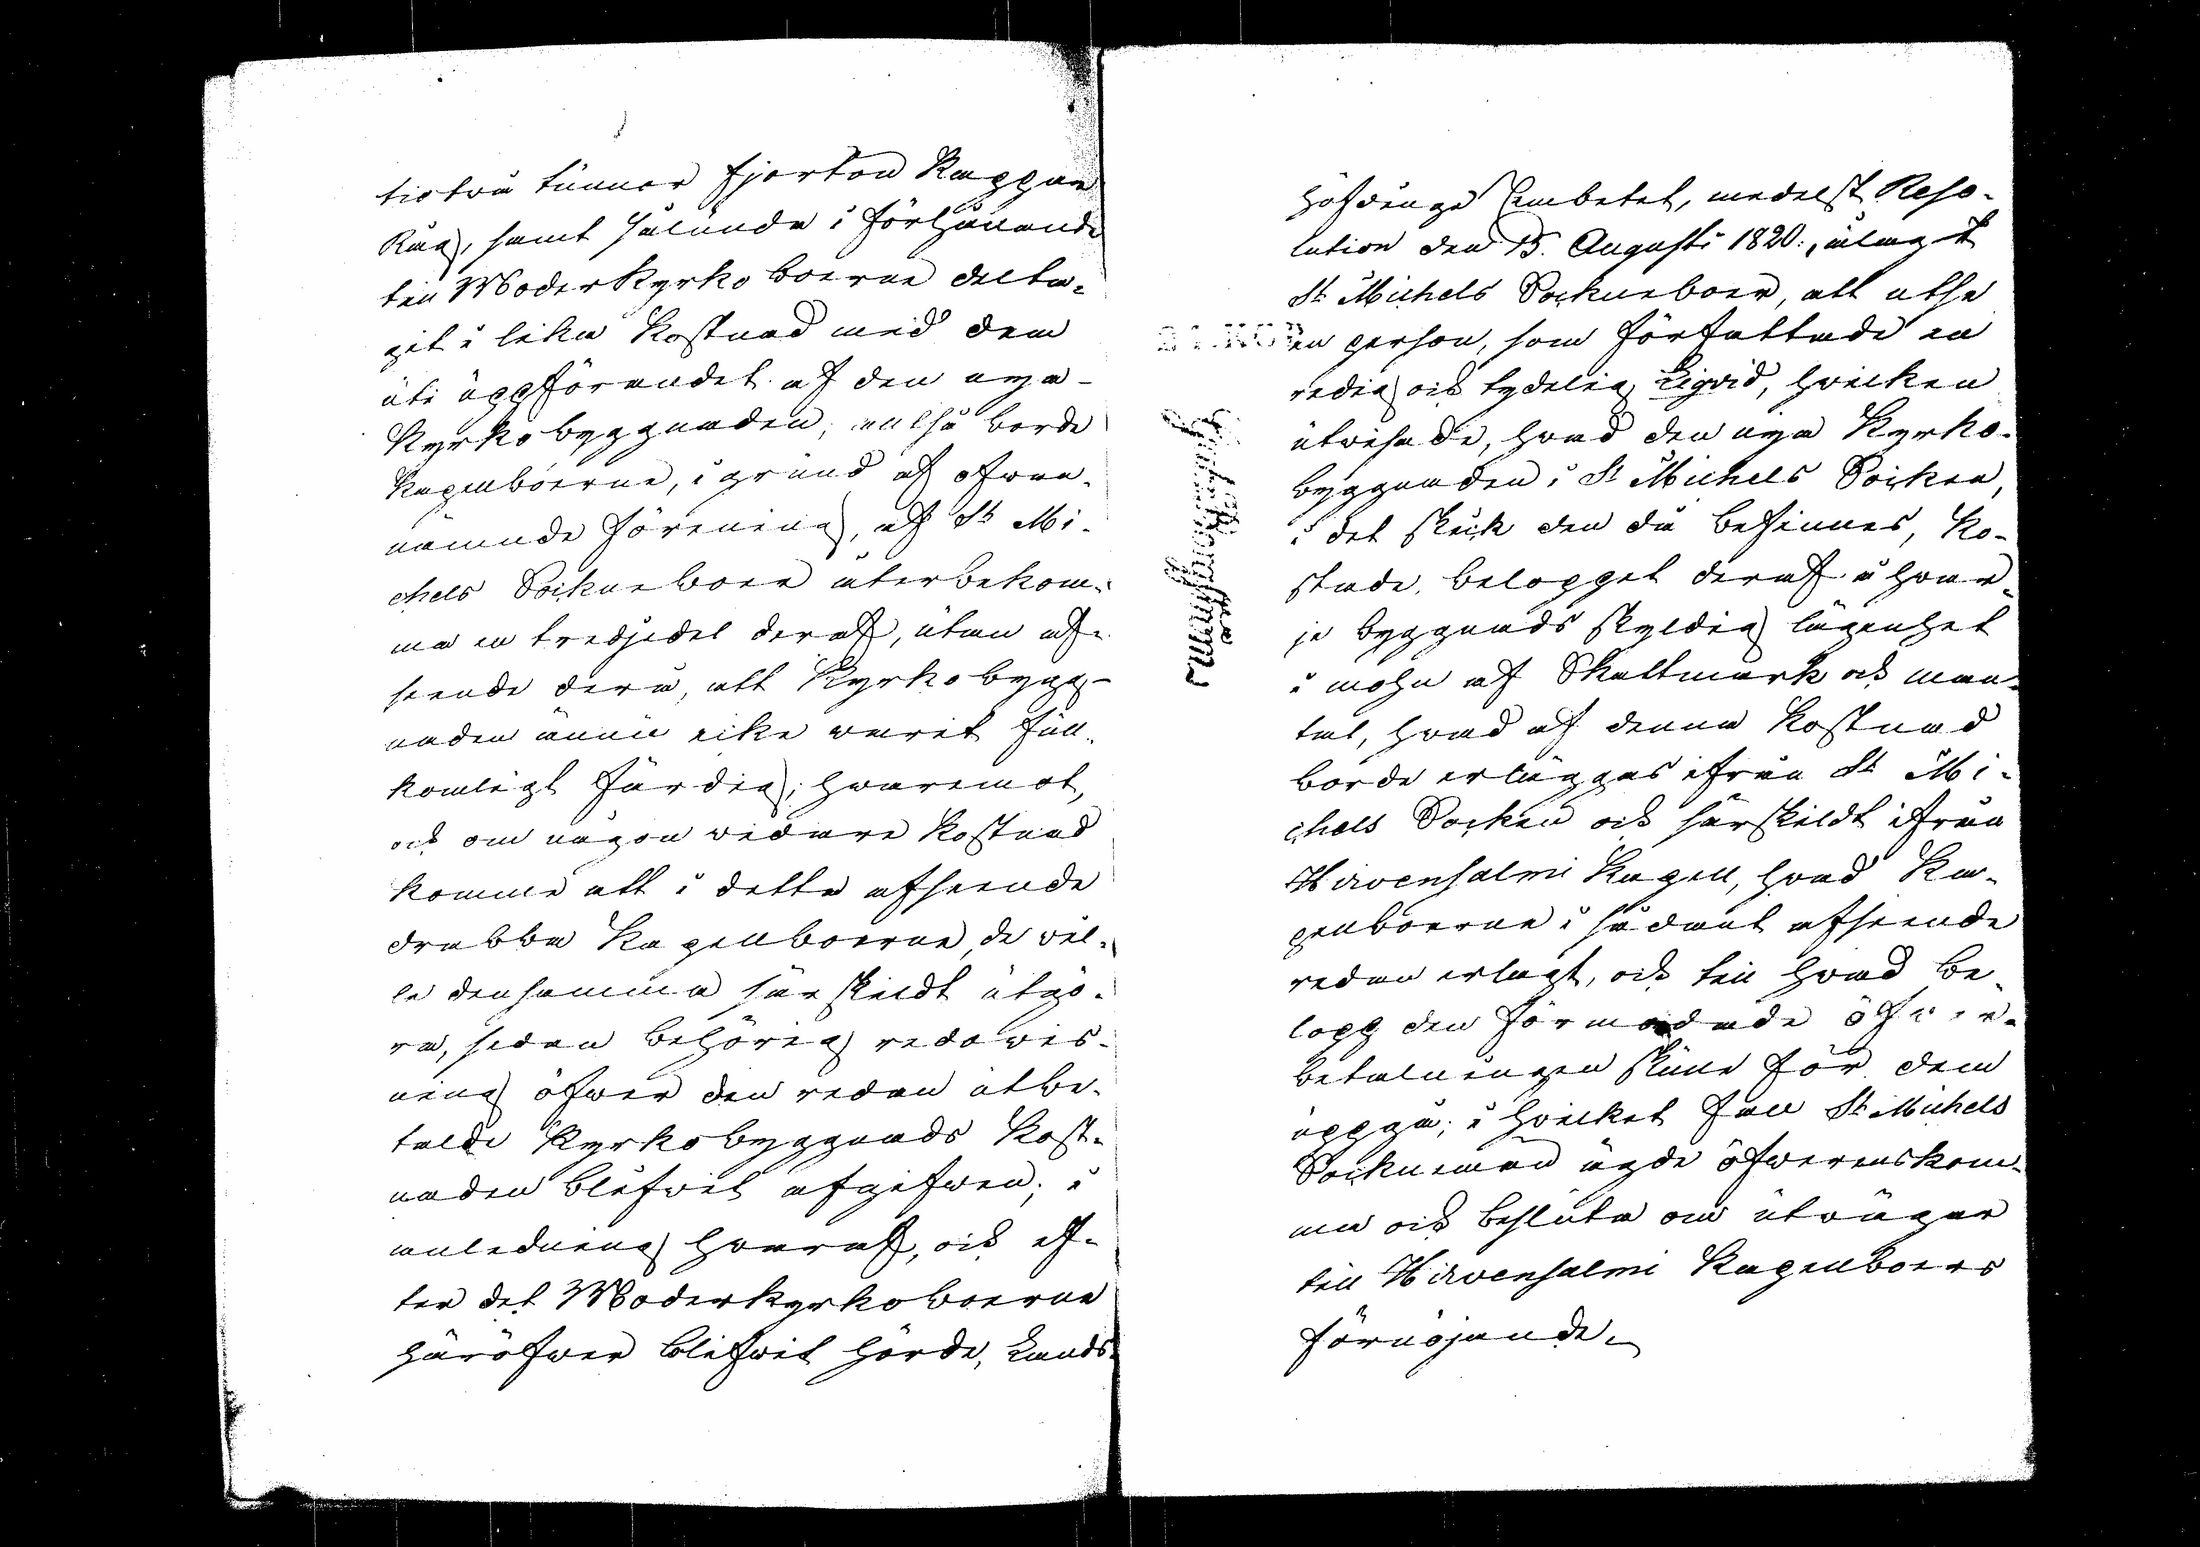 tiotvå tunnor fjorton Kappar
Råg, samt sålunda i förhållande
till Moderkyrkoboerne delta-
git i lika kostnad med dem
uti uppförandet af den nya
Kyrkobyggnaden; alltså borde
Kapellboerne, i grund af ofwan-
nämnde förening, af St Mi-
chels Sockneboer återbekom-
ma en tredjedel deraf, utan af-
seende derå, att Kyrkobygg-
naden ännu icke varit full-
komligt färdig; hvaremot,
och om någon vidare kostnad
komme att i detta afseende
drabba Kapellboerne, de vil-
le densamma särskildt utgö-
ra, sedan behörig redovis-
ning öfwer den redan utbe-
talde Kyrkobyggnads kost-
naden blifvit afgifwen; i
anledning hvaraf, och ef-
ter det Moderkyrkoboerne
häröfwer blifvit hörde, Lands-
höfdinge Embetet, medelst Reso-
lution den 15. Augusti 1820., ålagt
St Michels Sockneboer, att utse
en person, som författade en
redig och tydelig Liqvid, hvilken
utvisade, hvad den nya Kyrko-
byggnaden i St Michels Socken,
i det skick den då befinnes, ko-
stade, beloppet deraf å hvar-
je byggnads skyldig lägenhet
i mohn af Skattmark och man-
tal, hvad af denna kostnad
borde erläggas ifrån St Mi-
chels Socken och särskildt ifrån
Hirvensalmi Kapell, hvad Ka-
pellboerne i sådant afseende
redan erlagt, och till hvad be-
lopp den förmodade öfver-
betalningen skulle för dem
uppgå; i hvilket fall St Michels
Socknemän ägde öfwerenskom-
ma och besluta om utvägar
till Hirvensalmi Kapellboers
förnöjande.